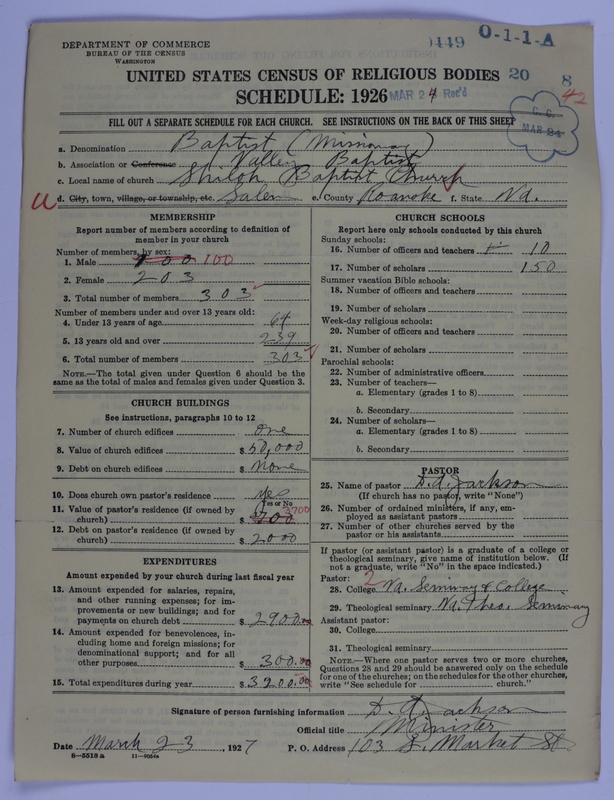 DEPARTMENT OF COMMERCE
BUREAU OF THE CENSUS
WASHINGTON
0449 O-1-1-A
UNITED STATES CENSUS OF RELIGIOUS BODIES 20 8
SCHEDULE: 1926 MAR 24 Rec'd 42
FILL OUT A SEPARATE SCHEDULE FOR EACH CHURCH. SEE INSTRUCTIONS ON THE BACK OF THIS SHEET
C. C.
MAR 24
a. Denomination Baptist (Missionary)
b. Association or Conference Valley Baptist
c. Local name of church Shiloh Baptist Church
U d. City, town, village, or township, etc. Salem e. County Roanoke f. State Va.
MEMBERSHIP
Report number of members according to definition of
member in your church
Number of members, by sex:
1. Male 100 100
2. Female 203
3. Total number of members 303
Number of members under and over 13 years old:
4. Under 13 years of age 64
5. 13 years old and over 239
6. Total number of members 303
NOTE.—The total given under Question 6 should be the
same as the total of males and females given under Question 3.
CHURCH BUILDINGS
See instructions, paragraphs 10 to 12
7. Number of church edifices one
8. Value of church edifices $ 50,000
9. Debt on church edifices $ None
10. Does church own pastor's residence yes
Yes or No
11. Value of pastor's residence (if owned by
church) $ 3700
12. Debt on pastor's residence (if owned by
church) $ 2000
EXPENDITURES
Amount expended by your church during last fiscal year
13. Amount expended for salaries, repairs,
and other running expenses; for im-
provements or new buildings; and for
payments on church debt $ 2900.00
14. Amount expended for benevolences, in-
cluding home and foreign missions; for
denominational support; and for all
other purposes $ 300.00
15. Total expenditures during year $ 3200.00
CHURCH SCHOOLS
Report here only schools conducted by this church
Sunday schools:
16. Number of officers and teachers 10
17. Number of scholars 150
Summer vacation Bible schools:
18. Number of officers and teachers
19. Number of scholars
Week-day religious schools:
20. Number of officers and teachers
21. Number of scholars
Parochial schools:
22. Number of administrative officers
23. Number of teachers—
a. Elementary (grades 1 to 8)
b. Secondary
24. Number of scholars—
a. Elementary (grades 1 to 8)
b. Secondary
PASTOR
25. Name of pastor D. A. Jackson
(If church has no pastor, write "None")
26. Number of ordained ministers, if any, em-
ployed as assistant pastors
27. Number of other churches served by the
pastor or his assistants
If pastor (or assistant pastor) is a graduate of a college or
theological seminary, give name of institution below. (If
not a graduate, write "No" in the space indicated.)
Pastor: 2
28. College Va. Seminary & College
29. Theological seminary Va. Theo. Seminary
Assistant pastor:
30. College
31. Theological seminary
NOTE.—Where one pastor serves two or more churches,
Questions 28 and 29 should be answered only on the schedule
for one of the churches; on the schedules for the other churches,
write "See schedule for church."
Signature of person furnishing information D. A. Jackson
Official title Minister
Date March 23, 1927 P. O. Address 103 S. Market St
8—5518 a 11—9054a